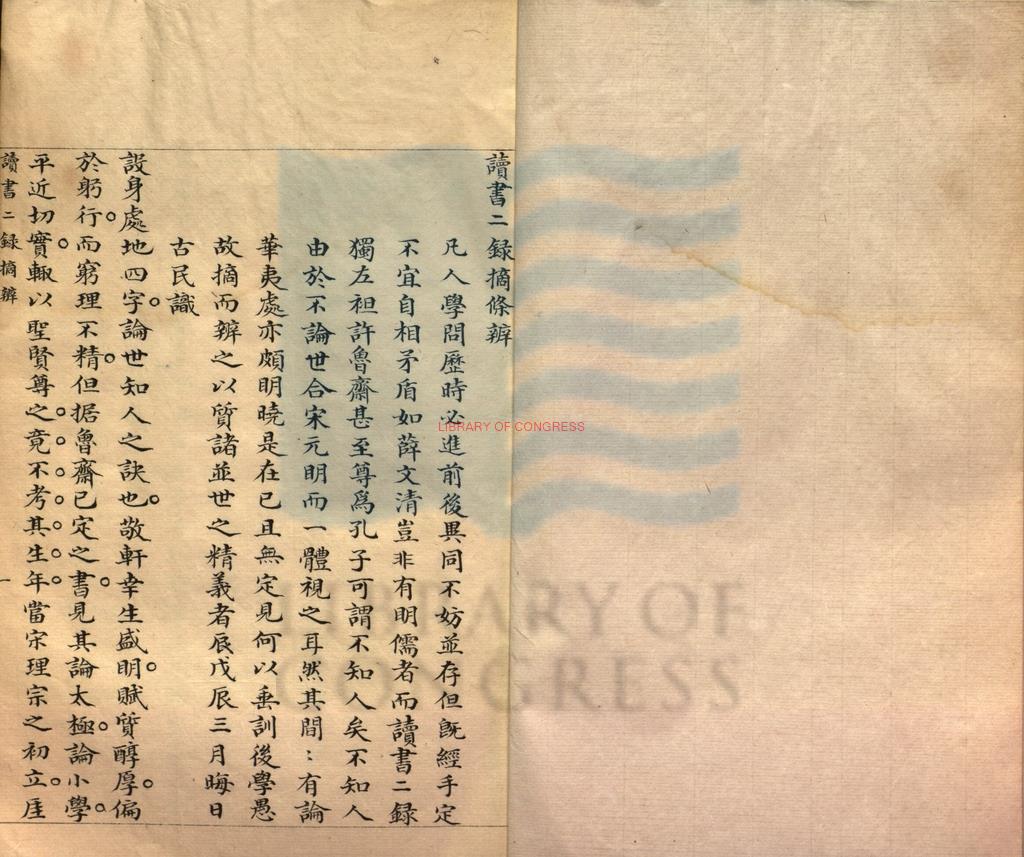 讀書二錄摘條辨
凡人學問歷時必進前後異同不妨並存但既經手定
不宜自相矛盾如薛文清豈非有明儒者而讀書二錄
獨左袒許魯齋甚至尊爲孔子可謂不知人矣不知人
由於不論世合宋元明而一體視之耳然其間〻有論
華夷處亦頗明曉是在已且無定見何以垂訓後學愚
故摘而辨之以質諸並世之精義者辰戊辰三月晦日
古民識
設身處地四字論世知人之訣也敬軒幸生盛明賦質醇厚偏
於躬行而窮理不精但据魯齋已定之書見其論太極論小學
平近切實輒以聖賢尊之竟不考其生年當宋理宗之初立厓
讀書二錄摘辨
一
LIBRARY OF CONGRESS
LIBRARY OF
CONGRESS